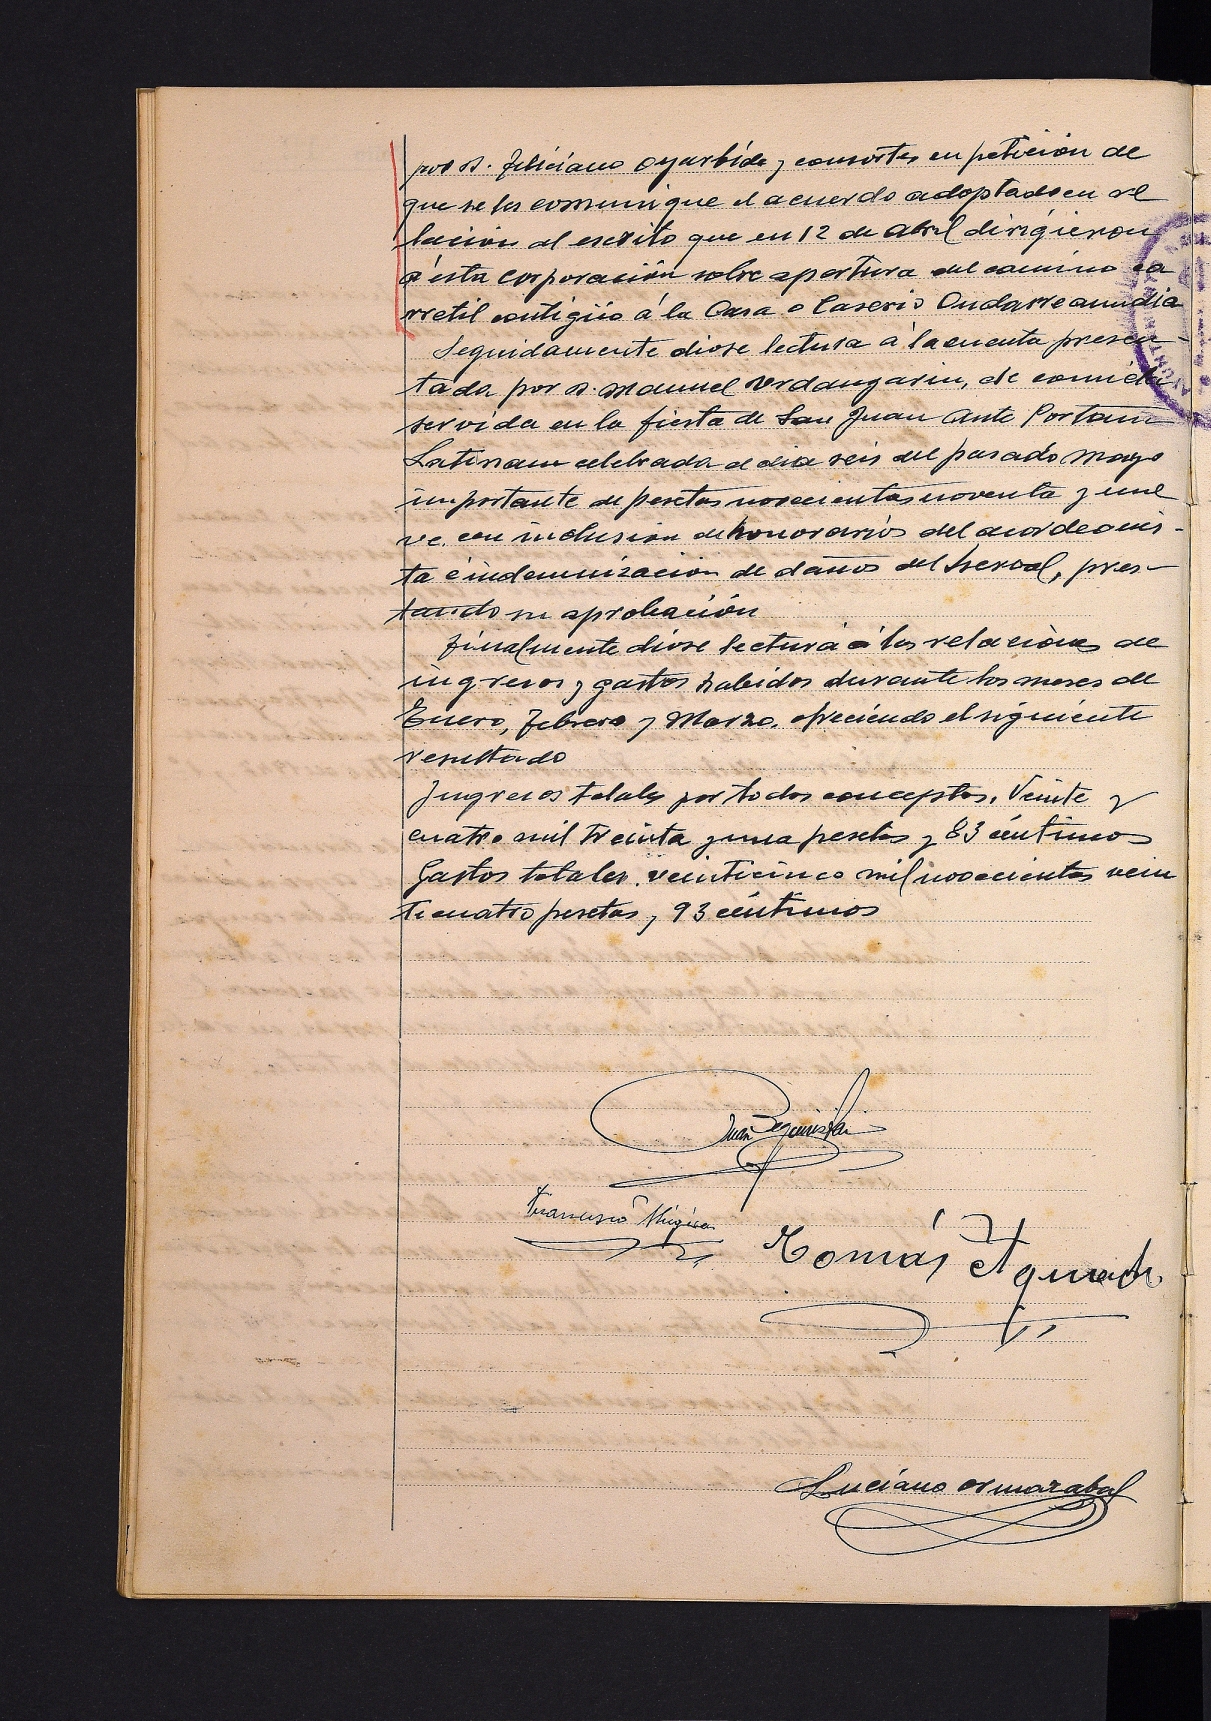 por D. Feliciano Oyarbide y consortes en petición de
que se les comunique el acuerdo adoptado en re
lación al escrito que en 12 de Abril dirigieron
á esta Corporación sobre apertura del camino ca
rretil contigüo á la Casa o Caserio Ondarreamendia
Seguidamente diose lectura á la cuenta presen-
tada por D. Manuel Urdangarin, de comida
servida en la fiesta de San Juan Ante Portam
Latinam celebrada el dia seis del pasado Mayo
importante de pesetas novecientas noventa y nue
ve, con inclusión de honorarios del acordeonis-
ta é indemnización de daños del, pres-
tando su aprobación
Finalmente diose lectura á las relaciones de
ingresos y gastos habidos durante los meses de
Enero, Febrero y Marzo, ofreciendo el siguiente
resultado
Ingresos totales por todos conceptos, Veinte y
cuatro mil treinta y una pesetas y 83 céntimos
Gastos totales, veinticinco mil novecientas vein
ticuatro pesetas y 93 céntimos
Juan Beguiristai
Francisco
Tomás
Luciano Ormazabal
AYUNTAMIENTO